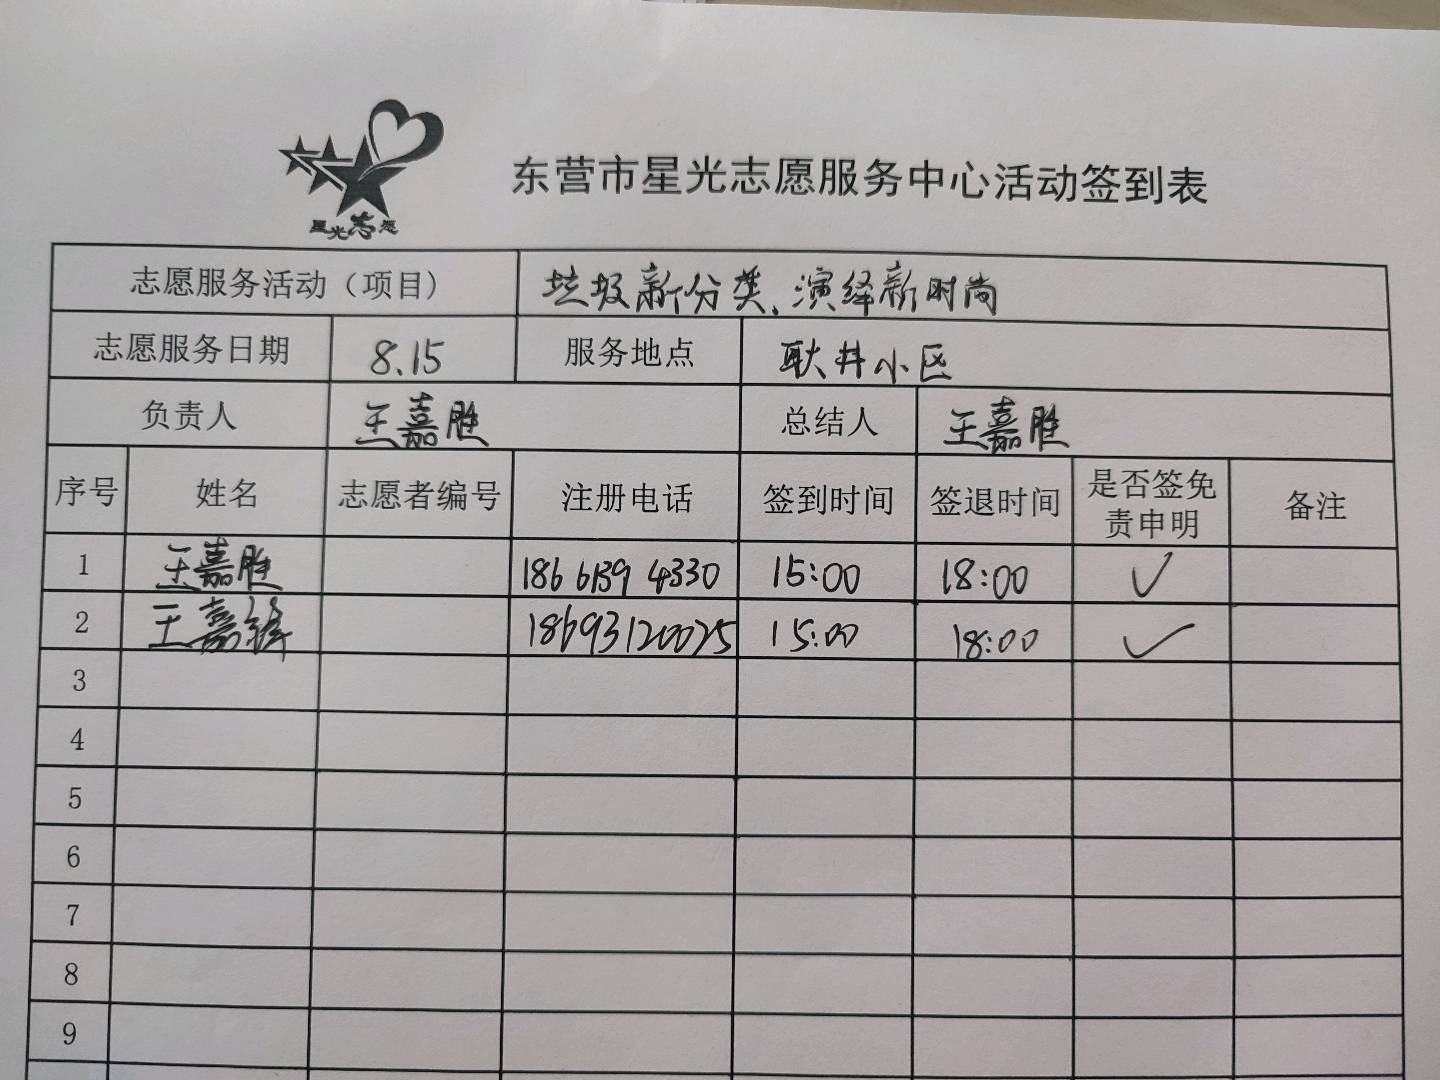 星光志愿
东营市星光志愿服务中心活动签到表
志愿服务活动（项目） 垃圾新分类、演绎新时尚
志愿服务日期 8.15 服务地点 耿井小区
负责人 王嘉胜 总结人 王嘉胜
序号 姓名 志愿者编号 注册电话 签到时间 签退时间 是否签免责申明 备注
1 王嘉胜 186 6139 4330 15:00 18:00 ✓
2 王嘉锋 18693120075 15:00 18:00 ✓
3
4
5
6
7
8
9